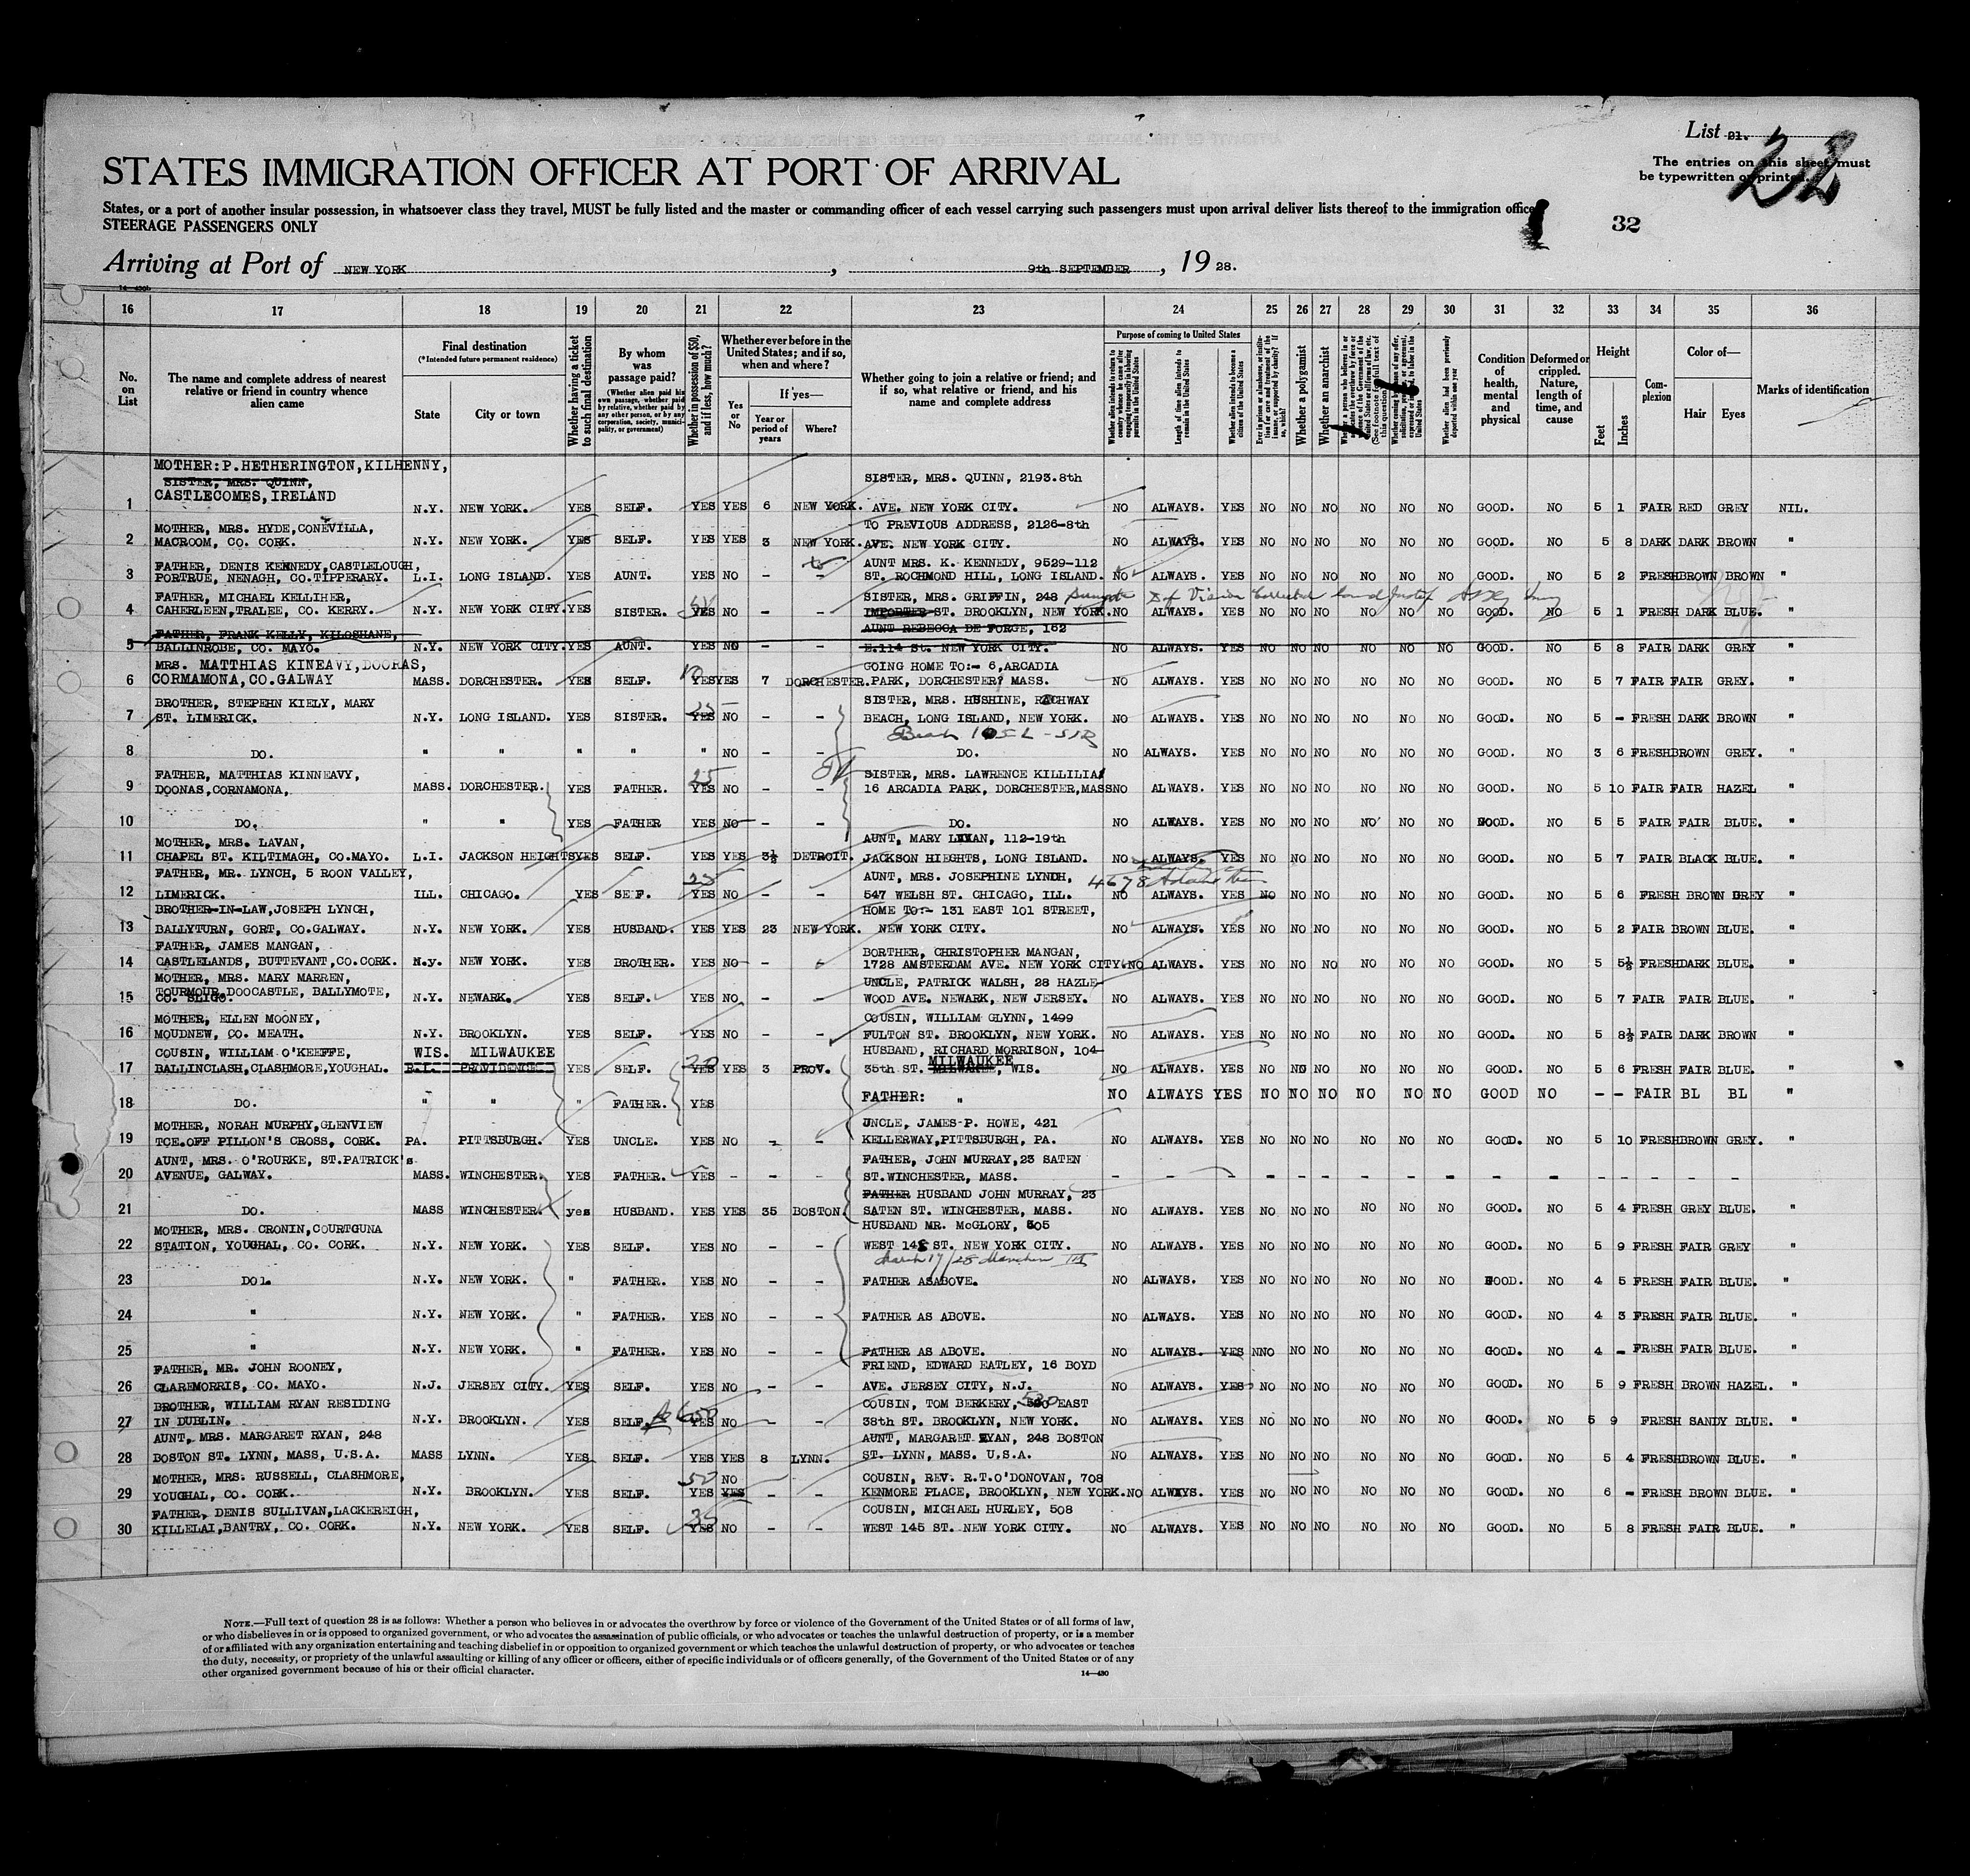 List 21.
22
The entries on this sheet must
be typewritten or printed.
STATES IMMIGRATION OFFICER AT PORT OF ARRIVAL
States, or a port of another insular possession, in whatsoever class they travel, MUST be fully listed and the master or commanding officer of each vessel carrying such passengers must upon arrival deliver lists thereof to the immigration officer
STEERAGE PASSENGERS ONLY
32
Arriving at Port of NEW YORK, 9th SEPTEMBER, 19 28.
16 17 18 19 20 21 22 23 24 25 26 27 28 29 30 31 32 33 34 35 36
No. on List
The name and complete address of nearest relative or friend in country whence alien came
Final destination
(*Intended future permanent residence)
State
City or town
Whether having a ticket to such final destination
By whom was passage paid?
Whether in possession of $50, and if less, how much?
Whether ever before in the United States; and if so, when and where?
Yes or No
If yes—
Year or period of years
Where?
Whether going to join a relative or friend; and if so, what relative or friend, and his name and complete address
Purpose of coming to United States
Whether a polygamist
Whether an anarchist
Condition of health, mental and physical
Deformed or crippled. Nature, length of time, and cause
Height
Feet
Inches
Complexion
Color of—
Hair
Eyes
Marks of identification
MOTHER: P. HETHERINGTON, KILHENNY, SISTER, MRS. QUINN, 2193.8th
SISTER, MRS. QUINN,
1 CASTLECOMES, IRELAND N.Y. NEW YORK. YES SELF. YES YES 6 NEW YORK. AVE. NEW YORK CITY. NO ALWAYS. YES NO NO NO NO NO NO GOOD. NO 5 1 FAIR RED GREY NIL.
MOTHER, MRS. HYDE, CONEVILLA, TO PREVIOUS ADDRESS, 2126-8th
2 MACROOM, CO. CORK. N.Y. NEW YORK. YES SELF. YES YES 3 NEW YORK. AVE. NEW YORK CITY. NO ALWAYS. YES NO NO NO NO NO NO GOOD. NO 5 8 DARK DARK BROWN "
FATHER, DENIS KENNEDY, CASTLELOUGH, AUNT MRS. K. KENNEDY, 9529-112
3 PORTRUE, NENAGH, CO. TIPPERARY. L.I. LONG ISLAND. YES AUNT. YES NO - - ST. ROCHMOND HILL, LONG ISLAND. NO ALWAYS. YES NO NO NO NO NO NO GOOD. NO 5 2 FRESH BROWN BROWN "
FATHER, MICHAEL KELLIHER, SISTER, MRS. GRIFFIN, 248
4 CAHERLEEN, TRALEE, CO. KERRY. N.Y. NEW YORK CITY. YES SISTER. YES NO - - IMPORTER ST. BROOKLYN, NEW YORK. NO ALWAYS. YES NO NO NO NO NO NO GOOD. NO 5 1 FRESH DARK BLUE. "
FATHER, FRANK KELLY, KILOSHANE, AUNT REBECCA DE FORGE, 152
5 BALLINROBE, CO. MAYO. N.Y. NEW YORK CITY. YES AUNT. YES NO - - E.114 St. NEW YORK CITY. NO ALWAYS. YES NO NO NO NO NO NO GOOD. NO 5 8 FAIR DARK GREY "
MRS. MATTHIAS KINEAVY, DOORAS, GOING HOME TO:- 6, ARCADIA
6 CORMAMONA, CO. GALWAY MASS. DORCHESTER. YES SELF. 10 YES YES 7 DORCHESTER. PARK, DORCHESTER, MASS. NO ALWAYS. YES NO NO NO NO NO NO GOOD. NO 5 7 FAIR FAIR GREY. "
BROTHER, STEPEHN KIELY, MARY SISTER, MRS. HUSHINE, RACHWAY
7 ST. LIMERICK. N.Y. LONG ISLAND. YES SISTER. 25 YES NO - - BEACH, LONG ISLAND, NEW YORK. NO ALWAYS. YES NO NO NO NO NO NO GOOD. NO 5 - FRESH DARK BROWN "
8 DO. " " " " " NO - - DO. NO ALWAYS. YES NO NO NO NO NO NO GOOD. NO 3 6 FRESH BROWN GREY. "
FATHER, MATTHIAS KINNEAVY, 25 SISTER, MRS. LAWRENCE KILLILIA
9 DOONAS, CORNAMONA, MASS. DORCHESTER. YES FATHER. YES NO - - 16 ARCADIA PARK, DORCHESTER, MASS NO ALWAYS. YES NO NO NO NO NO NO GOOD. NO 5 10 FAIR FAIR HAZEL "
10 DO. " " YES FATHER YES NO - - DO. NO ALWAYS. YES NO NO NO NO NO NO GOOD. NO 5 5 FAIR FAIR BLUE. "
MOTHER, MRS. LAVAN, AUNT, MARY 112-19th
11 CHAPEL ST. KILTIMAGH, CO. MAYO. L.I. JACKSON HEIGHTS YES SELF. YES YES 3½ DETROIT. JACKSON HIEGHTS, LONG ISLAND. NO ALWAYS. YES NO NO NO NO NO NO GOOD. NO 5 7 FAIR BLACK BLUE. "
FATHER, MR. LYNCH, 5 ROON VALLEY, 25 AUNT, MRS. JOSEPHINE LYNCH, 4678
12 LIMERICK. ILL. CHICAGO. YES SELF. YES NO - - 547 WELSH ST. CHICAGO, ILL. NO ALWAYS. YES NO NO NO NO NO NO GOOD. NO 5 6 FRESH BROWN GREY "
BROTHER-IN-LAW, JOSEPH LYNCH, HOME TO:- 131 EAST 101 STREET,
13 BALLYTURN, GORT, CO. GALWAY. N.Y. NEW YORK. YES HUSBAND. YES YES 23 NEW YORK. NEW YORK CITY. NO ALWAYS. YES NO NO NO NO NO NO GOOD. NO 5 2 FAIR BROWN BLUE. "
FATHER, JAMES MANGAN, BORTHER, CHRISTOPHER MANGAN,
14 CASTLELANDS, BUTTEVANT, CO. CORK. N.y. NEW YORK. YES BROTHER. YES NO - - 1728 AMSTERDAM AVE. NEW YORK CITY. NO ALWAYS. YES NO NO NO NO NO NO GOOD. NO 5 5½ FRESH DARK BLUE. "
MOTHER, MRS. MARY MARREN, UNCLE, PATRICK WALSH, 28 HAZLE-
TOURMOUR, DOOCASTLE, BALLYMOTE,
15 CO. SLIGO. N.Y. NEWARK. YES SELF. YES NO - - WOOD AVE. NEWARK, NEW JERSEY. NO ALWAYS. YES NO NO NO NO NO NO GOOD. NO 5 7 FAIR FAIR BLUE. "
MOTHER, ELLEN MOONEY, COUSIN, WILLIAM GLYNN, 1499
16 MOUDNEW, CO. MEATH. N.Y. BROOKLYN. YES SELF. YES NO - - FULTON ST. BROOKLYN, NEW YORK. NO ALWAYS. YES NO NO NO NO NO NO GOOD. NO 5 8½ FAIR DARK BROWN "
COUSIN, WILLIAM O'KEEFFE, WIS. MILWAUKEE 20 HUSBAND, RICHARD MORRISON, 104-
MILWAUKEE
17 BALLINCLASH, CLASHMORE, YOUGHAL. R.I. PROVIDENCE YES SELF. YES YES 3 PROV. 35th ST. WIS. NO ALWAYS. YES NO NO NO NO NO NO GOOD. NO 5 6 FRESH FAIR BLUE. "
18 DO. " " " FATHER. YES FATHER: " NO ALWAYS YES NO NO NO NO NO NO GOOD NO - - FAIR BL BL "
MOTHER, NORAH MURPHY, GLENVIEW UNCLE, JAMES P. HOWE, 421
19 TCE. OFF PILLON'S CROSS, CORK. PA. PITTSBURGH. YES UNCLE. YES NO - - KELLERWAY, PITTSBURGH, PA. NO ALWAYS. YES NO NO NO NO NO NO GOOD. NO 5 10 FRESH BROWN GREY. "
AUNT, MRS. O'ROURKE, ST. PATRICK's FATHER, JOHN MURRAY, 23 SATEN
20 AVENUE, GALWAY. MASS. WINCHESTER. YES FATHER. YES - - - ST. WINCHESTER, MASS. - - - - - - - - - - - - - - - -
FATHER HUSBAND JOHN MURRAY, 23
21 DO. MASS WINCHESTER. yes HUSBAND. YES YES 35 BOSTON SATEN ST. WINCHESTER, MASS. NO ALWAYS. YES NO NO NO NO NO NO GOOD. NO 5 4 FRESH GREY BLUE. "
MOTHER, MRS. CRONIN, COURTGUNA HUSBAND MR. McGLORY, 505
22 STATION, YOUGHAL, CO. CORK. N.Y. NEW YORK. YES SELF. YES NO - - WEST 148 ST. NEW YORK CITY. NO ALWAYS. YES NO NO NO NO NO NO GOOD. NO 5 9 FRESH FAIR GREY "
23 DO. N.Y. NEW YORK. " FATHER. YES NO - - FATHER AS ABOVE. NO ALWAYS. YES NO NO NO NO NO NO GOOD. NO 4 5 FRESH FAIR BLUE. "
24 " N.Y. NEW YORK. " FATHER. YES NO - - FATHER AS ABOVE. NO ALWAYS. YES NO NO NO NO NO NO GOOD. NO 4 3 FRESH FAIR BLUE. "
25 " N.Y. NEW YORK. " FATHER. YES NO - - FATHER AS ABOVE. NO ALWAYS. YES NNO NO NO NO NO NO GOOD. NO 4 - FRESH FAIR BLUE. "
FATHER, MR. JOHN ROONEY, FRIEND, EDWARD EATLEY, 16 BOYD
26 CLAREMORRIS, CO. MAYO. N.J. JERSEY CITY. YES SELF. YES NO - - AVE. JERSEY CITY, N.J. NO ALWAYS. YES NO NO NO NO NO NO GOOD. NO 5 9 FRESH BROWN HAZEL. "
BROTHER, WILLIAM RYAN RESIDING COUSIN, TOM BERKERY, 520 EAST
27 IN DUBLIN. N.Y. BROOKLYN. YES SELF. YES NO - - 38th ST. BROOKLYN, NEW YORK. NO ALWAYS. YES NO NO NO NO NO NO GOOD. NO 5 9 FRESH SANDY BLUE. "
AUNT, MRS. MARGARET RYAN, 248 AUNT, MARGARET RYAN, 248 BOSTON
28 BOSTON ST. LYNN, MASS, U.S.A. MASS LYNN. YES SELF. YES YES 8 LYNN. ST. LYNN, MASS. U.S.A. NO ALWAYS. YES NO NO NO NO NO NO GOOD. NO 5 4 FRESH BROWN BLUE. "
MOTHER, MRS. RUSSELL, CLASHMORE, 50 NO COUSIN, REV. R.T. O'DONOVAN, 708
29 YOUGHAL, CO. CORK. N.Y. BROOKLYN. YES SELF. YES YES - - KENMORE PLACE, BROOKLYN, NEW YORK. NO ALWAYS. YES NO NO NO NO NO NO GOOD. NO 6 - FRESH BROWN BLUE. "
FATHER, DENIS SULLIVAN, LACKEREIGH, 35 COUSIN, MICHAEL HURLEY, 508
30 KILLELAI, BANTRY, CO. CORK. N.Y. NEW YORK. YES SELF. YES NO - - WEST 145 ST. NEW YORK CITY. NO ALWAYS. YES NO NO NO NO NO NO GOOD. NO 5 8 FRESH FAIR BLUE. "
NOTE.—Full text of question 28 is as follows: Whether a person who believes in or advocates the overthrow by force or violence of the Government of the United States or of all forms of law,
or who disbelieves in or is opposed to organized government, or who advocates the assassination of public officials, or who advocates or teaches the unlawful destruction of property, or is a member
of or affiliated with any organization entertaining and teaching disbelief in or opposition to organized government or which teaches the unlawful destruction of property, or who advocates or teaches
the duty, necessity, or propriety of the unlawful assaulting or killing of any officer or officers, either of specific individuals or of officers generally, of the Government of the United States or of any
other organized government because of his or their official character.
14—430